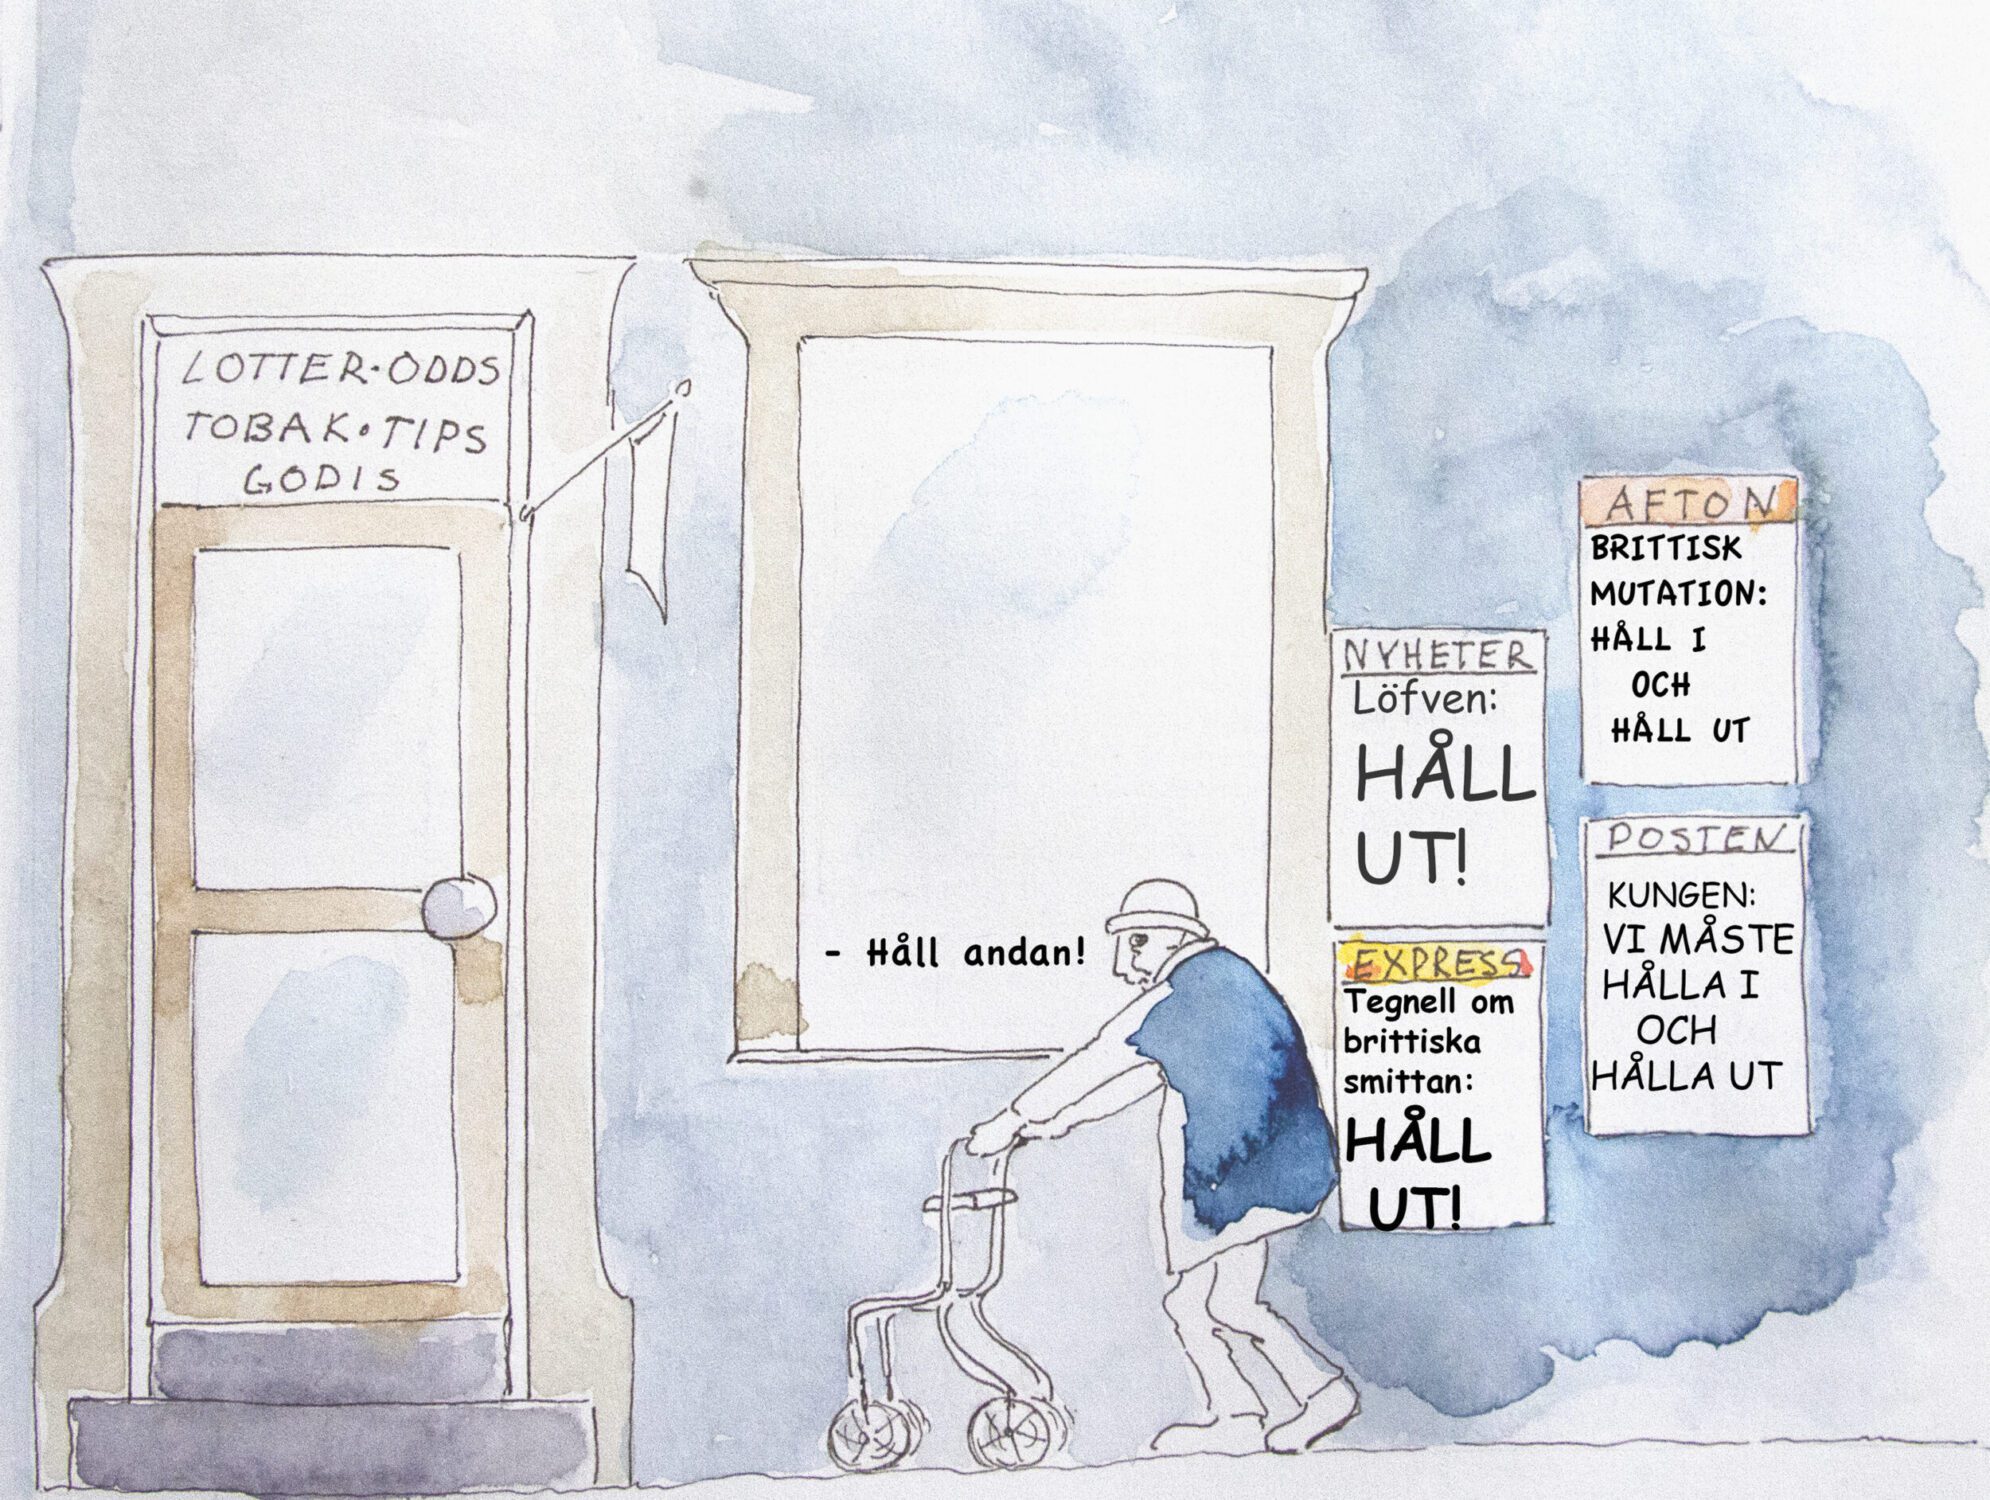 LOTTER·ODDS
TOBAK·TIPS
GODIS
- Håll andan!
NYHETER
Löfven:
HÅLL
UT!
EXPRESS
Tegnell om
brittiska
smittan:
HÅLL
UT!
AFTON
BRITTISK
MUTATION:
HÅLL I
OCH
HÅLL UT
POSTEN
KUNGEN:
VI MÅSTE
HÅLLA I
OCH
HÅLLA UT